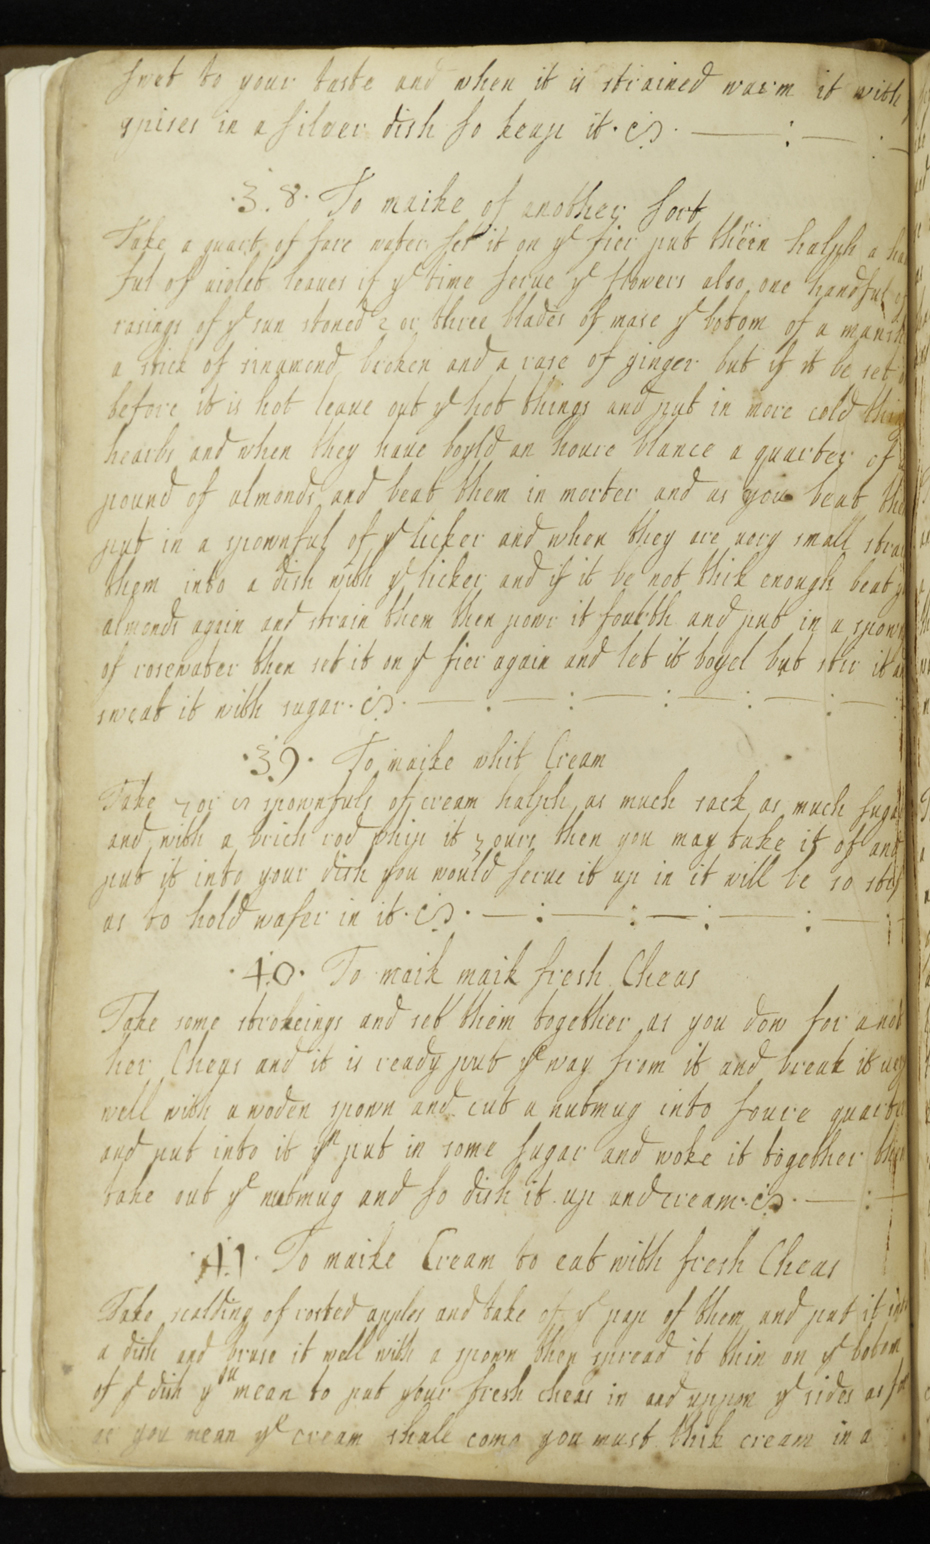 swet to your taste and when it is strained warm it with
spises in a silver dish so keap it
.38. To maike of another sort
Take a quart of fare water set it on ye fier put therin halph a ha
ful of violet leaues if ye time serue ye flowers also one handful of
rasings of ye sun stoned 2 or three blades of mase ye botom of a manch
a stick of sinamond broken and a rase of ginger but if it be set
before it is hot leaue out ye hot things and put in more cold thin
hearbs and when they haue boyld an houre blance a quarter of
pound of almonds and beat them in morter and as you beat the
put in a spownful of ye licker and when they are uery small strai
them into a dish with ye licker and if it be not thik enough beat ye
almonds again and strain them then powr it fourth and put in a spown
of rosewater then set it on ye fier again and let it boyel but stir it
sweat it with sugar
.39. To maike whit Cream
Take 7 or spownfuls of cream halph as much sack as much suga
and with a birch rod whip it 3 ours then you may take it of and
put it into your dish you would serue it up in it will be so stif
as to hold wafer in it
.40. To maik maik fresh Cheas
Take some strokeings and set them together as you dow for anot
her Cheas and it is ready put ye way from it and break it uer
well with a woden spown and cut a nutmug into foure quarte
and put into it yn put in some sugar and woke it together then
take out ye nutmug and so dish it up and cream
.41. To maike Cream to eat with fresh Cheas
Take scalding of rosted apples and take of ye pap of them and put it into
a dish and bruse it well with a spown then spread it thin on ye botom
of ye dish yu mean to put your fresh cheas in and uppon ye sides as far
as you mean ye cream shall come you must thik cream in a